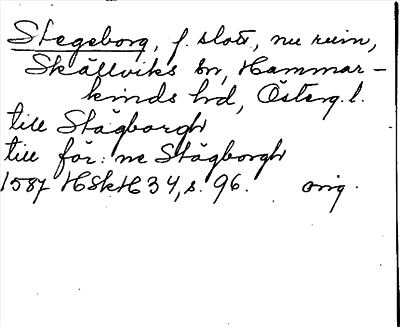 Stegeborg, f. slott, nu ruin,
Skällviks sn, Hammar-
kinds hd, Österg.l.
till Stägborgh
till för: ne Stägborgh
1587 HSkH 34, s. 96. orig.